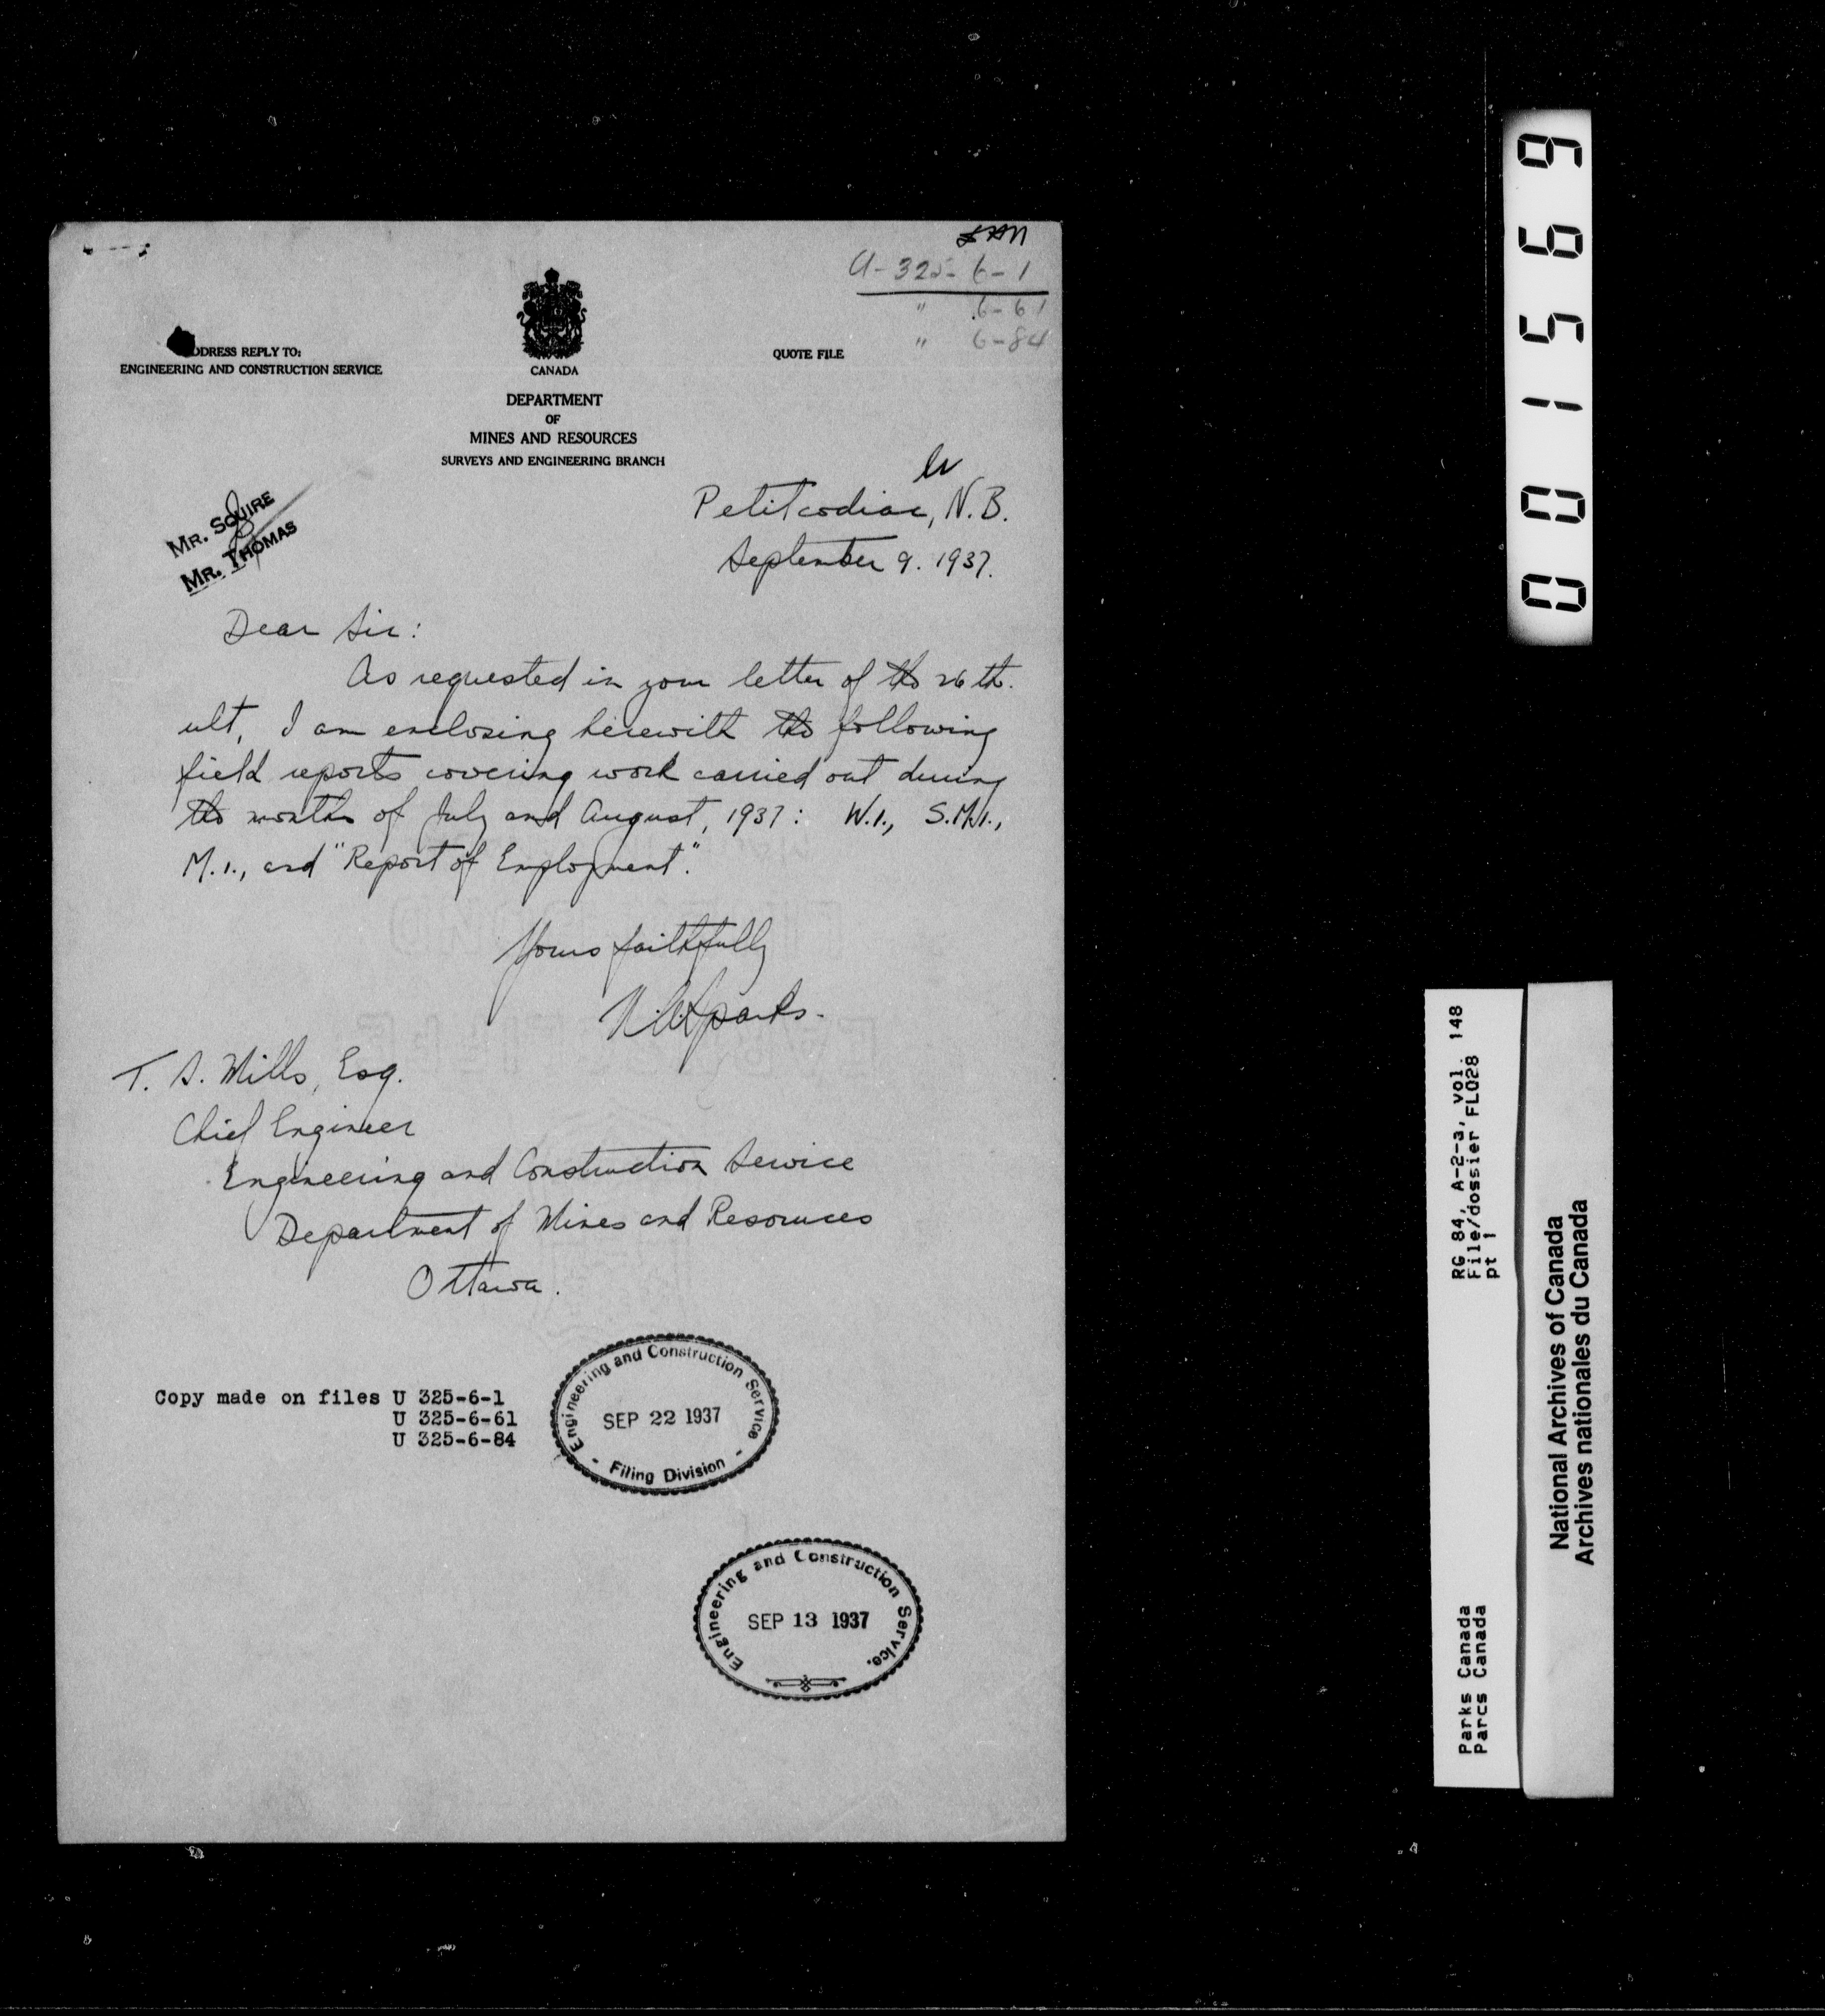 U-325-6-1
" 6-61
" 6-84
ADDRESS REPLY TO:
ENGINEERING AND CONSTRUCTION SERVICE
QUOTE FILE
CANADA
DEPARTMENT
OF
MINES AND RESOURCES
SURVEYS AND ENGINEERING BRANCH
MR. SQUIRE
MR. THOMAS
Petitcodiac, N.B.
September 9. 1937.
Dear Sir:
As requested in your letter of the 26th.
ult, I am enclosing herewith the following
field reports covering work carried out during
the months of July and August, 1937: W.1., S.M.1.,
M.1., and "Report of Employment".
Yours faithfully
T. S. Mills, Esq.
Chief Engineer
Engineering and Construction Service
Department of Mines and Resources
Ottawa.
Copy made on files U 325-6-1
U 325-6-61
U 325-6-84
Engineering and Construction Service
SEP 22 1937
- Filing Division -
Engineering and Construction Service.
SEP 13 1937
001569
RG 84, A-2-a, vol. 148
File/dossier FLO28
pt 1
Parks Canada
Parcs Canada
National Archives of Canada
Archives nationales du Canada